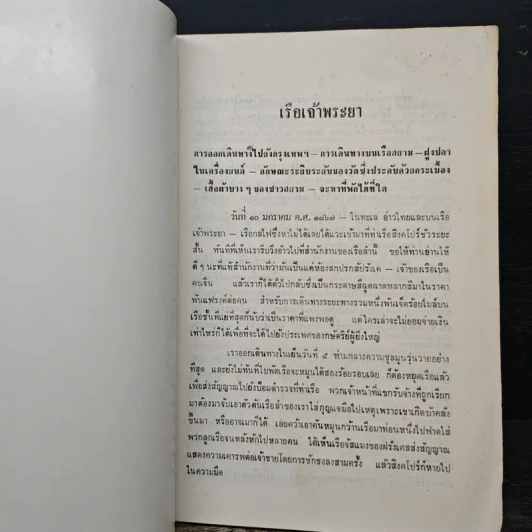 เรือเจ้าพระยา
การออกเดินทางไปยังกรุงเทพฯ – การเดินทางบนเรือกลยาม – ฝูงปลา
ในเครื่องยนต์ – ลักษณะระยิบระยับของวัดซึ่งประดับด้วยกระเบื้อง
– เสื้อผ้าบาง ๆ ของชาวสยาม – จะหาที่พักได้ที่ใด
วันที่ ๑๐ มกราคม ค.ศ. ๑๘๖๗ – ในทะเล อ่าวไทยและบนเรือ
เจ้าพระยา – เรือกลไฟซึ่งหาไม่ได้เลยได้แวะเข้ามาที่ท่าเรือสิงคโปร์ชั่วระยะ
สั้น ทันทีที่เห็นเรารีบวิ่งอ้าวไปที่สำนักงานของเรือลำนี้ ขอให้ท่านอ่านให้
ดี ๆ นะที่แท้สำนักงานที่ว่ามันเป็นแค่ห้องสกปรกสัปรังเค – เจ้าของเรือเป็น
คนจีน แล้วเราก็ได้ตั๋วไปกลับซึ่งเป็นกระดาษสีฉูดฉาดหลากสีมาในราคา
พันแฟรงค์ต่อคน สำหรับการเดินทางระยะทางรวมหนึ่งพันเจ็ดร้อยไมล์บน
เรือชั้นที่แย่ที่สุดก็นับว่าเป็นราคาที่แพงพอดู แต่ใครเล่าจะไม่ยอมจ่ายเงิน
เท่าไหร่ก็ได้เพื่อที่จะได้ไปยังประเทศของกษัตริย์ผู้ยิ่งใหญ่
เราออกเดินทางในเย็นวันที่ ๕ ท่ามกลางความชุลมุนวุ่นวายอย่าง
ที่สุด และยังไม่ทันที่ใบพัดเรือจะหมุนได้สองร้อยรอบเลย ก็ต้องหยุดเรือแล้ว
เพื่อส่งสัญญาณไปยังป้อมตำรวจที่ท่าเรือ พวกเจ้าหน้าที่แขกรับจ้างที่ถูกเรียก
มาต้องมาจับเอาตัวต้นเรือลำของเราใส่กุญแจมือไปเหตุเพราะเขาเกิดบ้าคลั่ง
ขึ้นมา หรืออาจเมาก็ได้ เลยคว้าเอาคันหมุนกว้านเรือมาท่อนหนึ่งไปฟาดใส่
พวกลูกเรือจนหลังหักไปหลายคน ได้เห็นเรือจัสแมงของฝรั่งเศสส่งสัญญาณ
แสดงความเคารพต่อเจ้าชายโดยการชักธงลงสามครั้ง แล้วสิงคโปร์ก็หายไป
ในความมืด